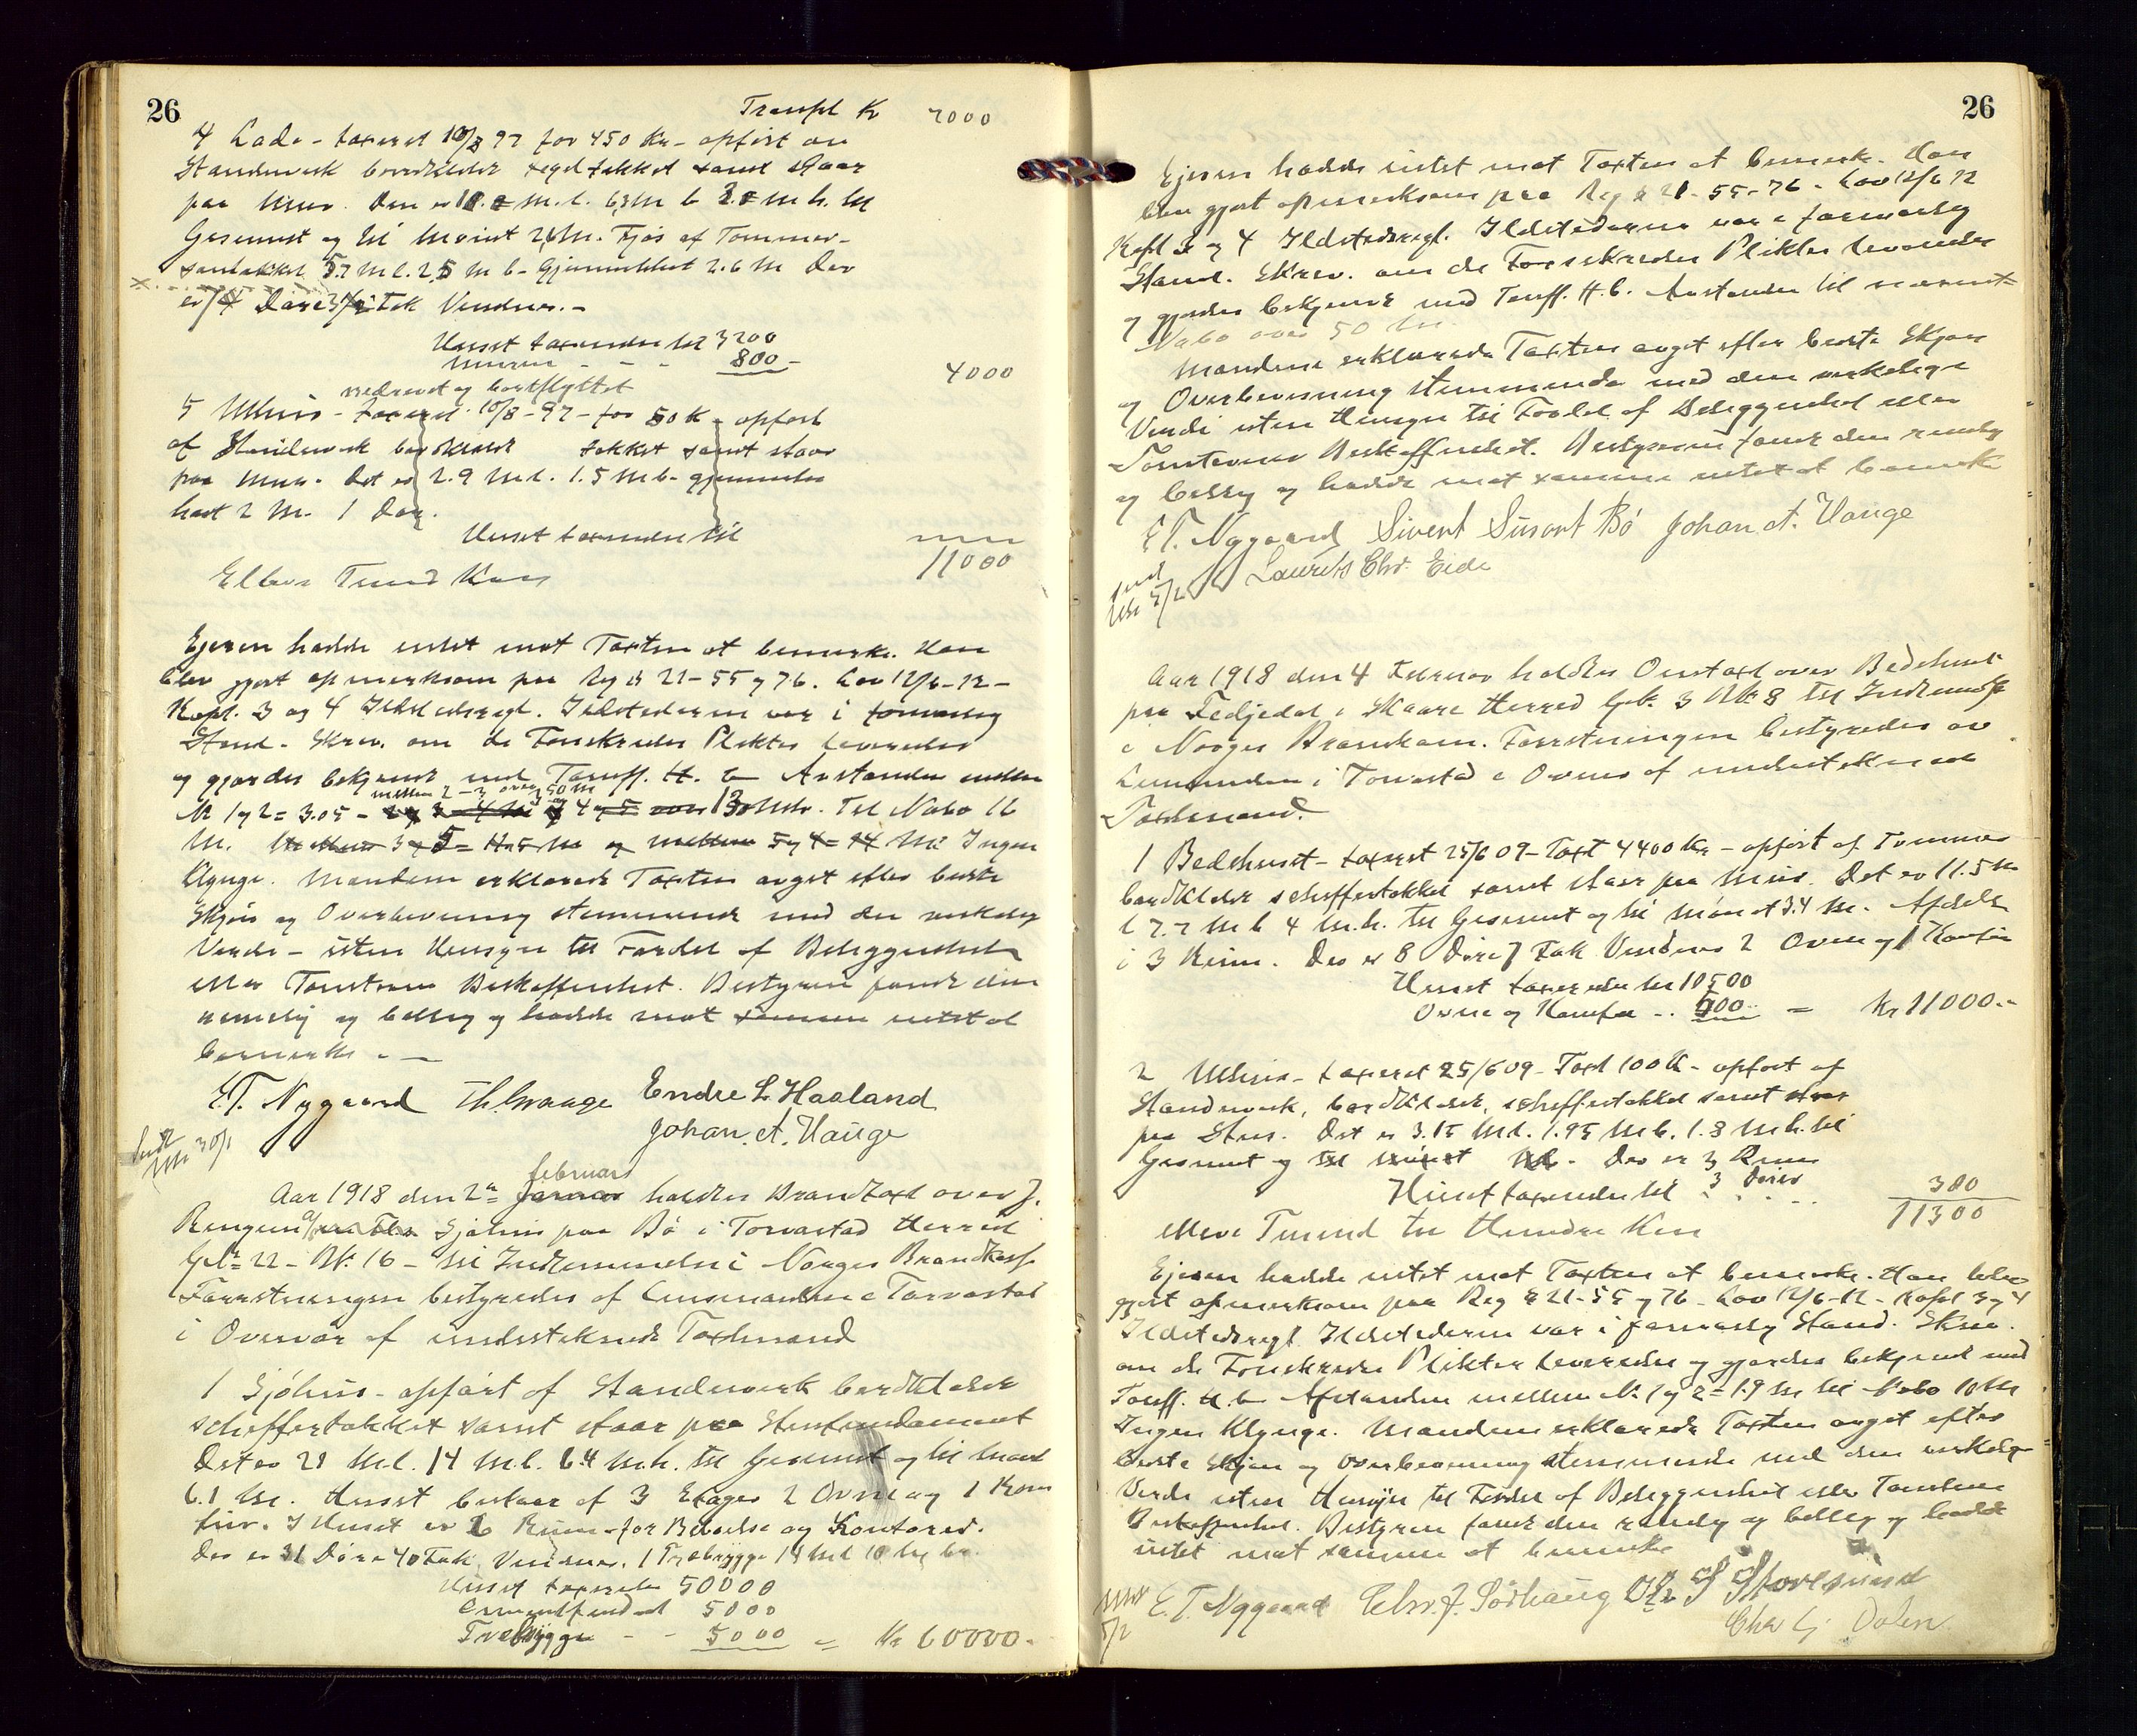 26
Transpl Kr 7000
4 Lade - taxeret 10/8 97 for 450 Kr - opført av
Standerverk bordklædt tegltækket samt staar
paa Mur. Den er m. l. 6,3 m b m h. til
Gesemst og til Mønet m. Fjøs af Tømmer
5.7 m l. 2.5 m b. Gjennemsnit 2.6 m Der
er Døre Fak Vinduer. -
Huset taxeredes til 3200
Muren - - - 800 - 4000
nedrevet og bortflyttet
5 Uthus - taxeret 10/8 - 97 - for 50 K - opført
af Standerverk bordklædt tækket samt staar
paa Mur. Det er 2.9 m l. 1.5 m b. gjennemsn
høit 2 m. 1 Dør.
Huset taxeredes til
11000
Elleve Tusind Kroner
Ejeren hadde intet mot Taxten at bemerke. Han
blev gjort opmerksom paa Reg § 21 - 55 og 76. Lov 12/6 - 12 -
Kapl. 3 og 4 Ildstedsregl. Ildstederne var i forsvarlig
Stand. Skrev. om de Forsikredes Plikter leveredes
og gjordes bekjendt med Tariff. H. b. Avstanden mellem
mellem 2 - 3 over 50 m
N 1 og 2 = 3.05 - 130 Mtr. Til Nabo 16
M. Mellem 3 og 5 = 11.5 m og mellem 5 og 4 = 14 M. Ingen
Klynge. Mændene erklærede Taxten avgit efter bedste
Skjøn og Overbevisning stemmende med den virkelige
Verdi - uten Hensyn til Fordel af Beliggenhed
eller Tomtens Beskaffenhet. Bestyreren fandt den
rimelig og billig og hadde mot samme intet at
bemerke. -
E. T. Nygaard Endre L. Haaland
Johan. A. Hauge
30/1
februar
Aar 1918 den 2n Januar holdtes Brandtaxt over J.
Sjøhus paa Bø i Torvastad Herred
G.Nr 22 - B.Nr. 16 - til Indlemmelse i Norges Brandkasse
Forretningen bestyredes af Lensmanden i Torvastad
i Overvær af undertegnede Taxtmænd
1 Sjøhus - opført af Standerverk bordklædt
schiffertækket samt staar paa Stenfundament
Det er 28 m l. 14 m b. 6.4 m h. til Gesemst og til Mønet
6.1 m. Huset bestaar af 3 Etager 2 Ovne og 1 Kom
fur. I Huset er 6 Rum for Beboelse og Kontorer.
Der er 31 Døre 40 Fak Vinduer. 1 Træbrygge 14 m l 10 m br.
Huset taxeredes 50000
Cementfundam 5000
Træbrygge - - 5000 = Kr 60000.-
26
Ejeren hadde intet mot Taxten at bemerke. Han
blev gjort opmerksom paa Reg § 21 - 55 - 76 - Lov 12/6 12
Kapl 3 og 4 Ildstedsregl. Ildstederne var i forsvarlig
Stand. Skrev. om de Forsikredes Plikter leveredes
og gjordes bekjendt med Tariff. H. b. Avstanden til nærmeste
Nabo over 50 m.
Mændene erklærede Taxten avgit efter bedste Skjøn
og Overbevisning stemmende med den virkelige
Verdi uten Hensyn til Fordel af Beliggenhet eller
Tomtens Beskaffenhet. Bestyreren fandt den rimelig
og billig og hadde mot samme intet at bemerke
E. T. Nygaard Sivert Sivert Bø Johan. A. Hauge
Laurits Chr. Eide
5/2
Aar 1918 den 4 Februar holdtes Omtaxt over Bedehuset
paa Fedjedal i Skaare Herred G.Nr. 3 B.Nr. 8 til Indlemmelse
i Norges Brandkasse. Forretningen bestyredes av
Lensmanden i Torvastad i Overvær af undertegnede
Taxtmænd.
1 Bedehuset - taxeret 25/6 09 - Taxt 4400 Kr - opført af Tømmer
bordklædt schiffertækket samt staar paa Mur. Det er 11.5 m
l 7.7 m b 4 m.h. til Gesemst og til Mønet 3.4 m. Afdelt
i 3 Rum. Der er 8 Døre 7 Fak Vinduer 2 Ovne og 1 Komfur
Huset taxeredes til 10500
Ovne og Komfur - . 500 = Kr 11000.-
2 Uthus - taxeret 25/6 09 - Taxt 100 K - opført af
Standerverk, bordklædt, schiffertækket samt staar
paa Sten. Det er 3.15 m l. 1.95 m b. 1.8 m h. til
Gesemst og til Mønet Der er 3 Rum
3 Dører
Huset taxeredes til 300
11300
Elleve Tusind tre Hundre Kroner
Ejeren hadde intet mot Taxten at bemerke. Han blev
gjort opmerksom paa Reg § 21 - 55 og 76 - Lov 12/6 - 12 - Kapl 3 og 4
Ildstedsregl. Ildstederne var i forsvarlig Stand. Skrev.
om de Forsikredes Plikter leveredes og gjordes bekjendt med
Tariff. H. b. Afstanden mellem N. 1 og 2 = 1.9 m til Nabo 10 m
Ingen Klynge. Mændene erklærede Taxten avgit efter
bedste Skjøn og Overbevisning stemmende med den virkelige
Verdi uten Hensyn til Fordel af Beliggenhet eller Tomtens
Beskaffenhet. Bestyreren fandt den rimelig og billig og hadde
intet mot samme at bemerke
E. T. Nygaard Chr. J. Sørhaug S Storesund
Dalen
5/2